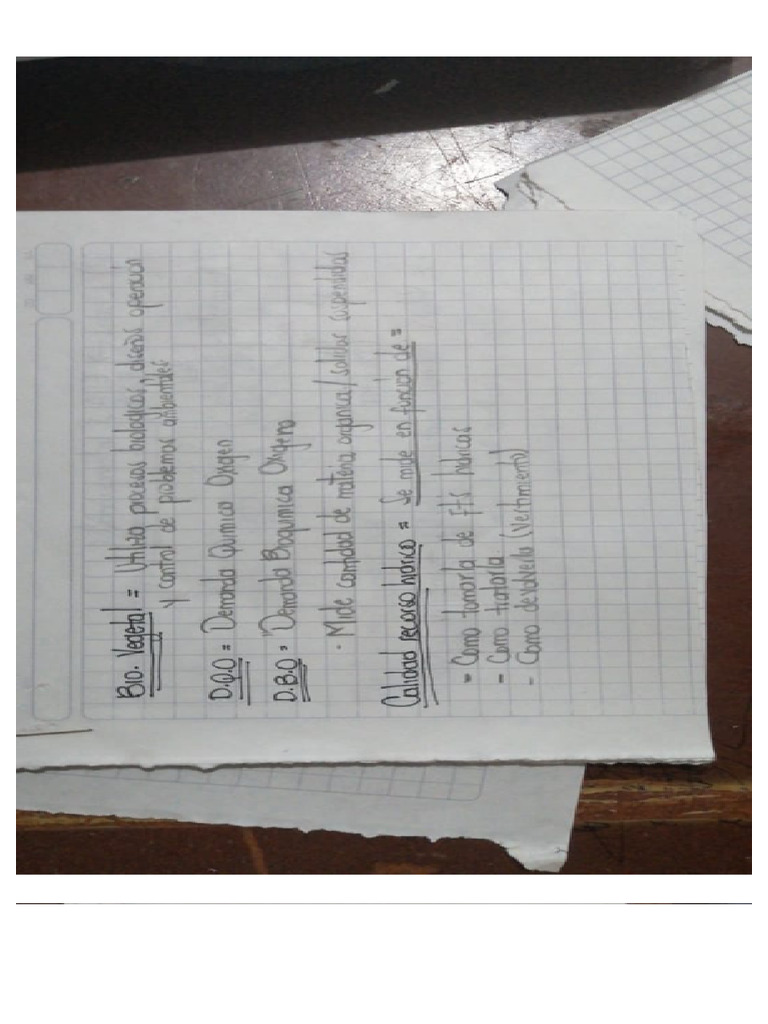 Bio. Vegetal = Utiliza procesos biologicos, diseños operación
y control de problemas ambientales
D.Q.O = Demanda Quimica Oxigen
D.B.O = Demanda Bioquimica Oxigeno
- Mide cantidad de materia organica/solidos suspendidos
Calidad recurso hidrico = Se mide en función de =
- Como tomarla de Fts hidricas
- Como tratarla
- Como devolverla (Vertimiento)